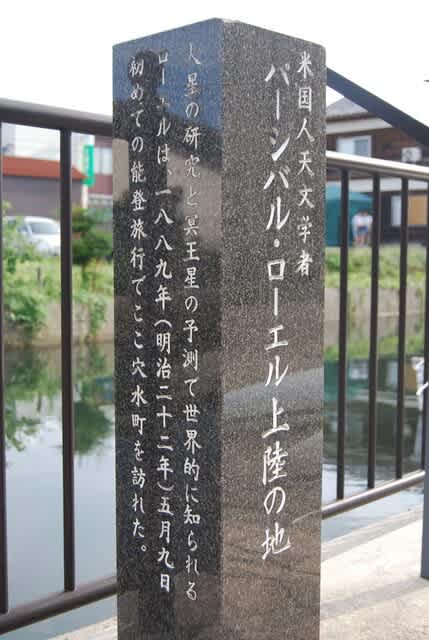 米国人天文学者
パーシバル・ローエル上陸の地
火星の研究と冥王星の予測で世界的に知られる
ローエルは、一八八九年（明治二十二年）五月九日
初めての能登旅行でここ穴水町を訪れた。